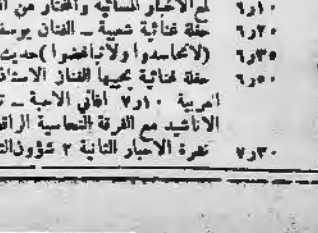 ٦٫١٠ لمع الاخبار المسائية والمختار من
٦٫٢٠ حفلة غنائية شعبية ــ الفنان يوسف
٦٫٣٥ (لاتحاسدوا ولاتباغضوا) حديث
٦٫٥٠ حفلة غنائية يحييها الفنان الاستاذ
العربية ٧٫١٠ اغاني الاحبة ــ
الاناشيد مع الفرقة النحاسية
٧٫٣٠ نشرة الاخبار الثانية ٢ شؤون